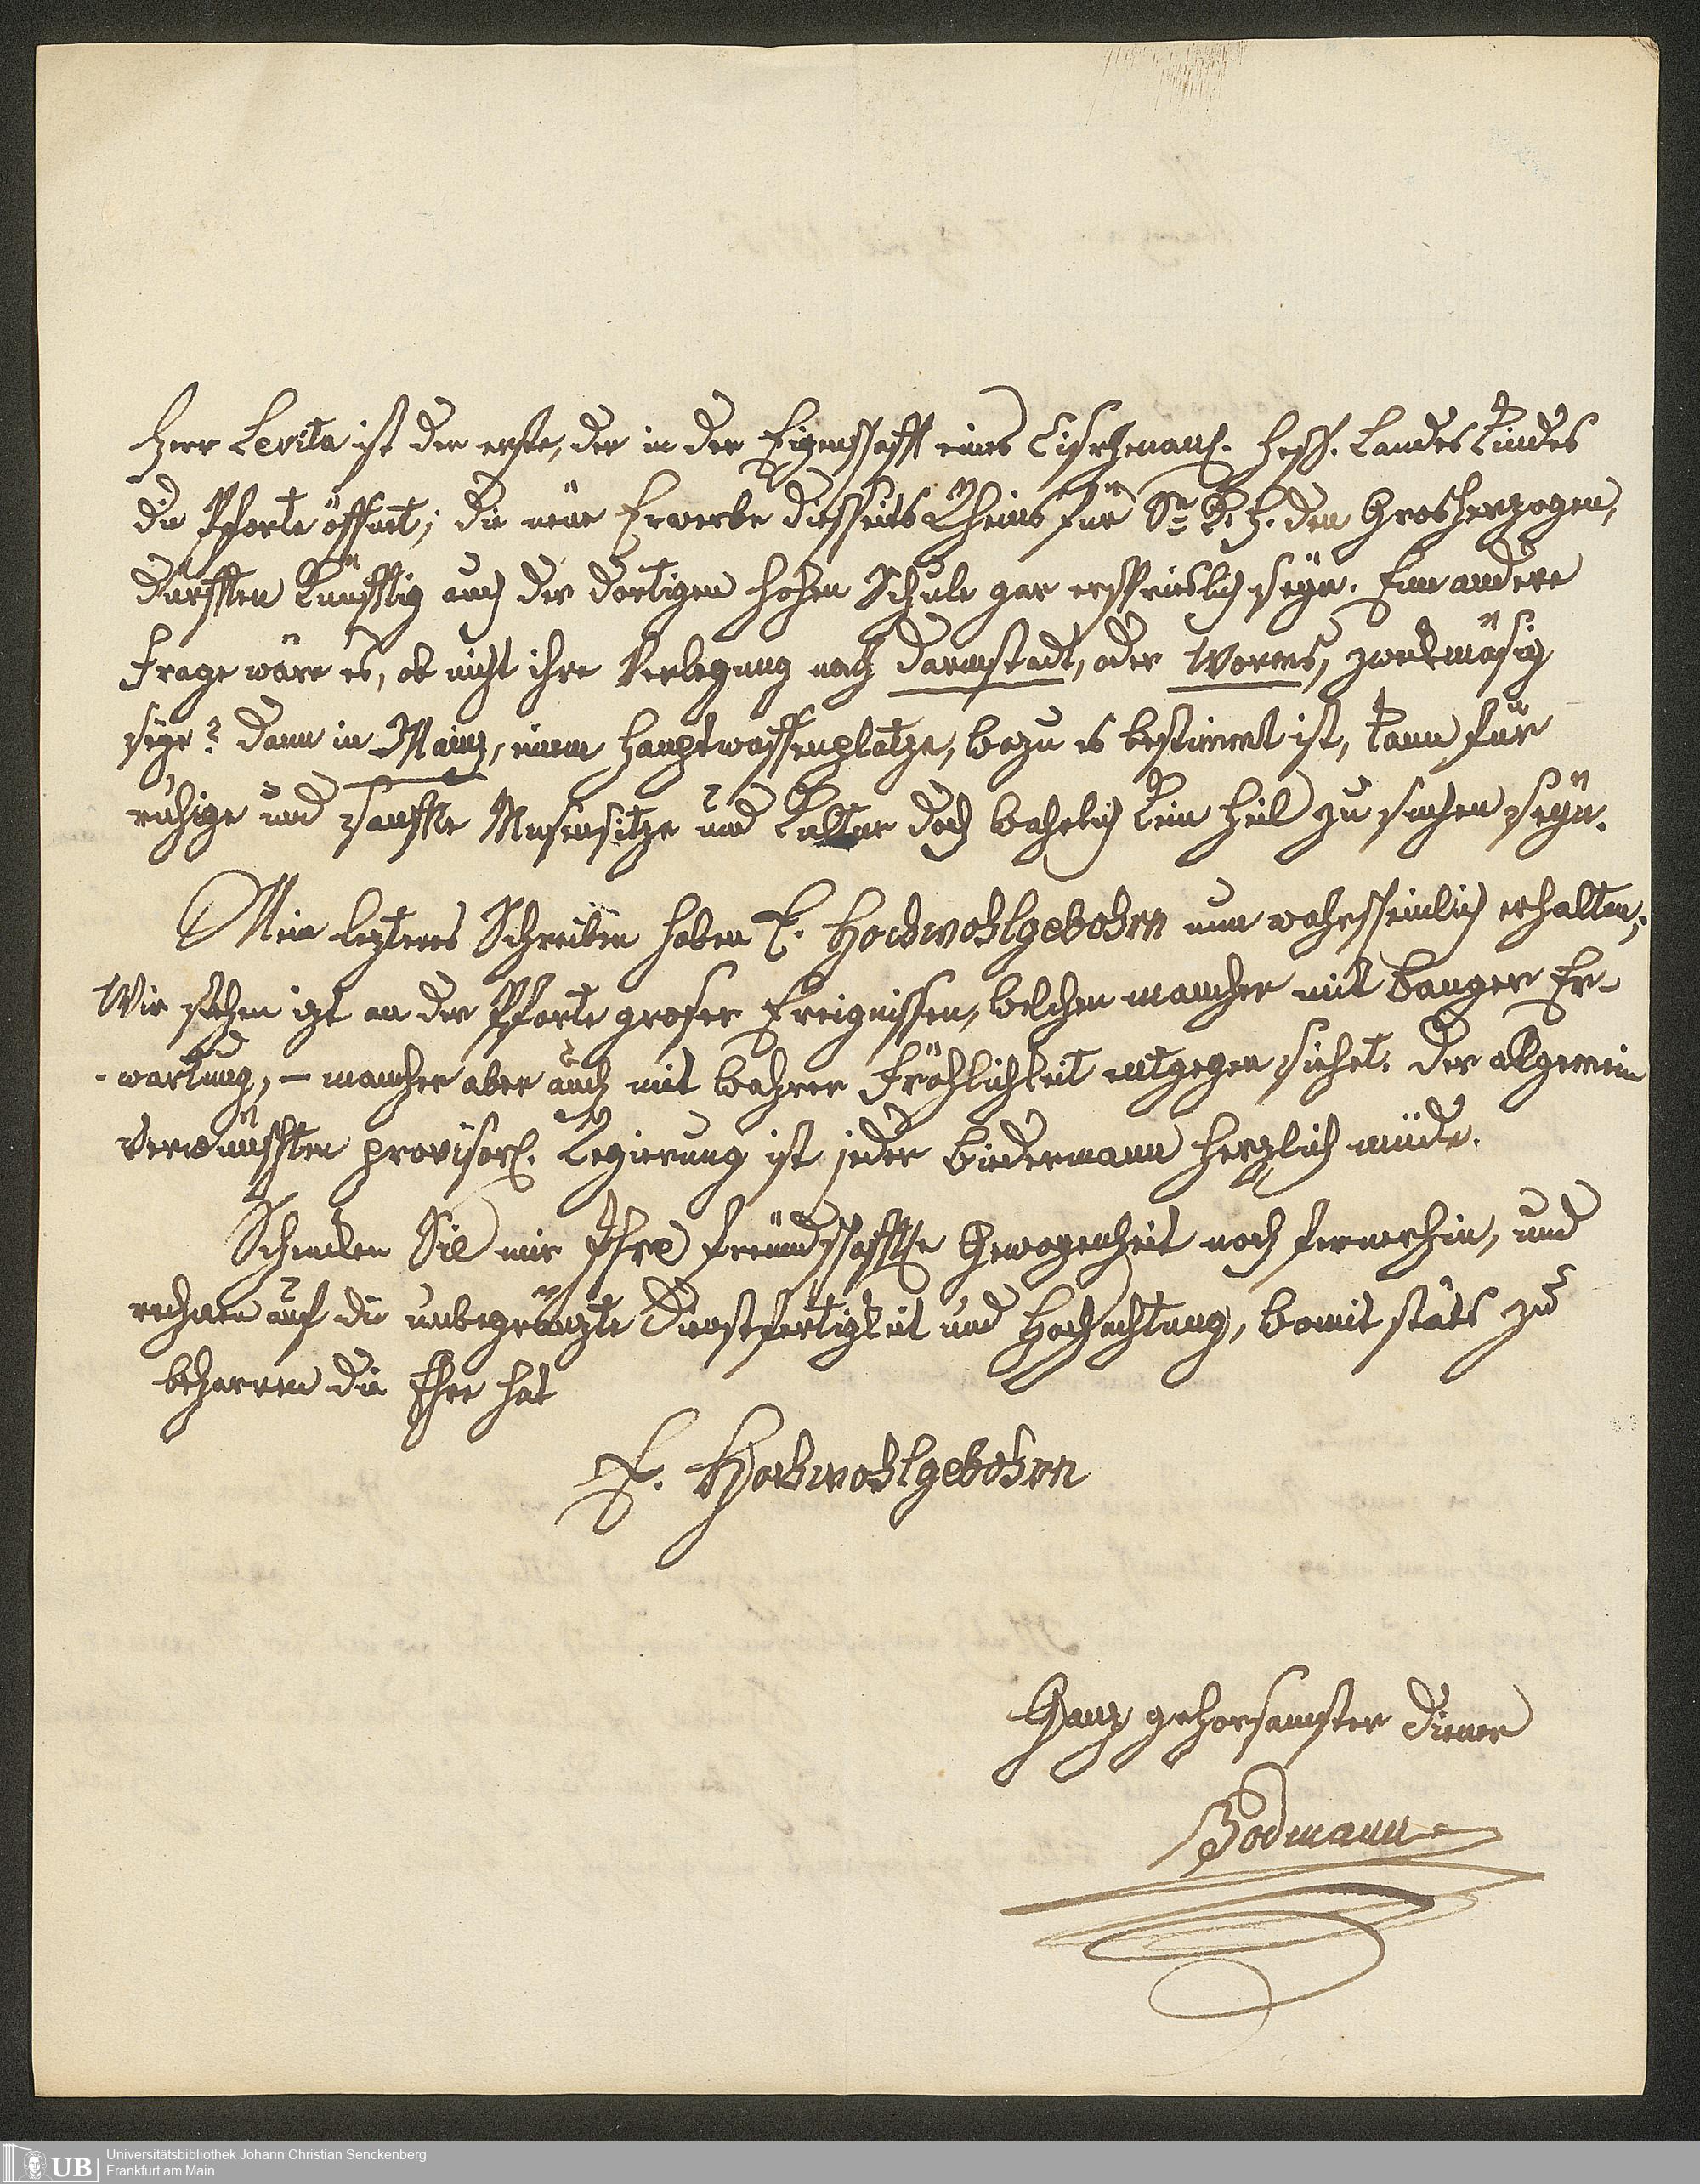 Herr Levita ist der erste, der in der Eigenschafft eines Cisrhenan. Hess. Landes Kindes
die Pforte öffnet; die neüe Erwerbe diesseits Rheins für Sr K. H. den Grosherzogen,
dürfften künfftig auch der dortigen hohen Schule gar erspriesslich seyn. Eine andere
Frage wäre es, ob nicht ihre Verlegung nach Darmstadt, oder Worms, zwekmäsig
seye? dann in Mainz, einem Hauptwaffenplatze, wozu es bestimmt ist, kann für
ruhige und sanffte Musensitze und Kultur doch wahrlich kein Heil zu suchen seyn.
Mein lezteres Schreiben haben E. Hochwohlgebohrn nun wahrscheinlich erhalten;
Wir stehen izt an der Pforte groser Ereignissen, welchen mancher mit banger Er-
-wartung, – mancher aber auch mit wahrer Fröhlichkeit entgegen siehet. Der allgemein
verwünschten provisor. Regierung ist jeder Biedermann herzlich müde.
Schenken Sie mir Ihre freündschafftl. Gewogenheit noch fernerhin, und
rechnen auf die unbegränzte Dienstfertigkeit und Hochachtung, womit stäts zu
beharren die Ehre hat
E. Hochwohlgebohrn
Ganz gehorsamster Diener
Bodmann
UB
Universitätsbibliothek Johann Christian Senckenberg
Frankfurt am Main